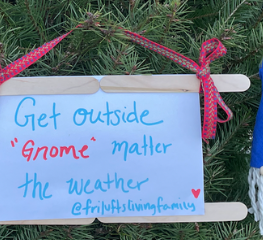 Get outside
"Gnome" matter
the weather
@friluftslivingfamily